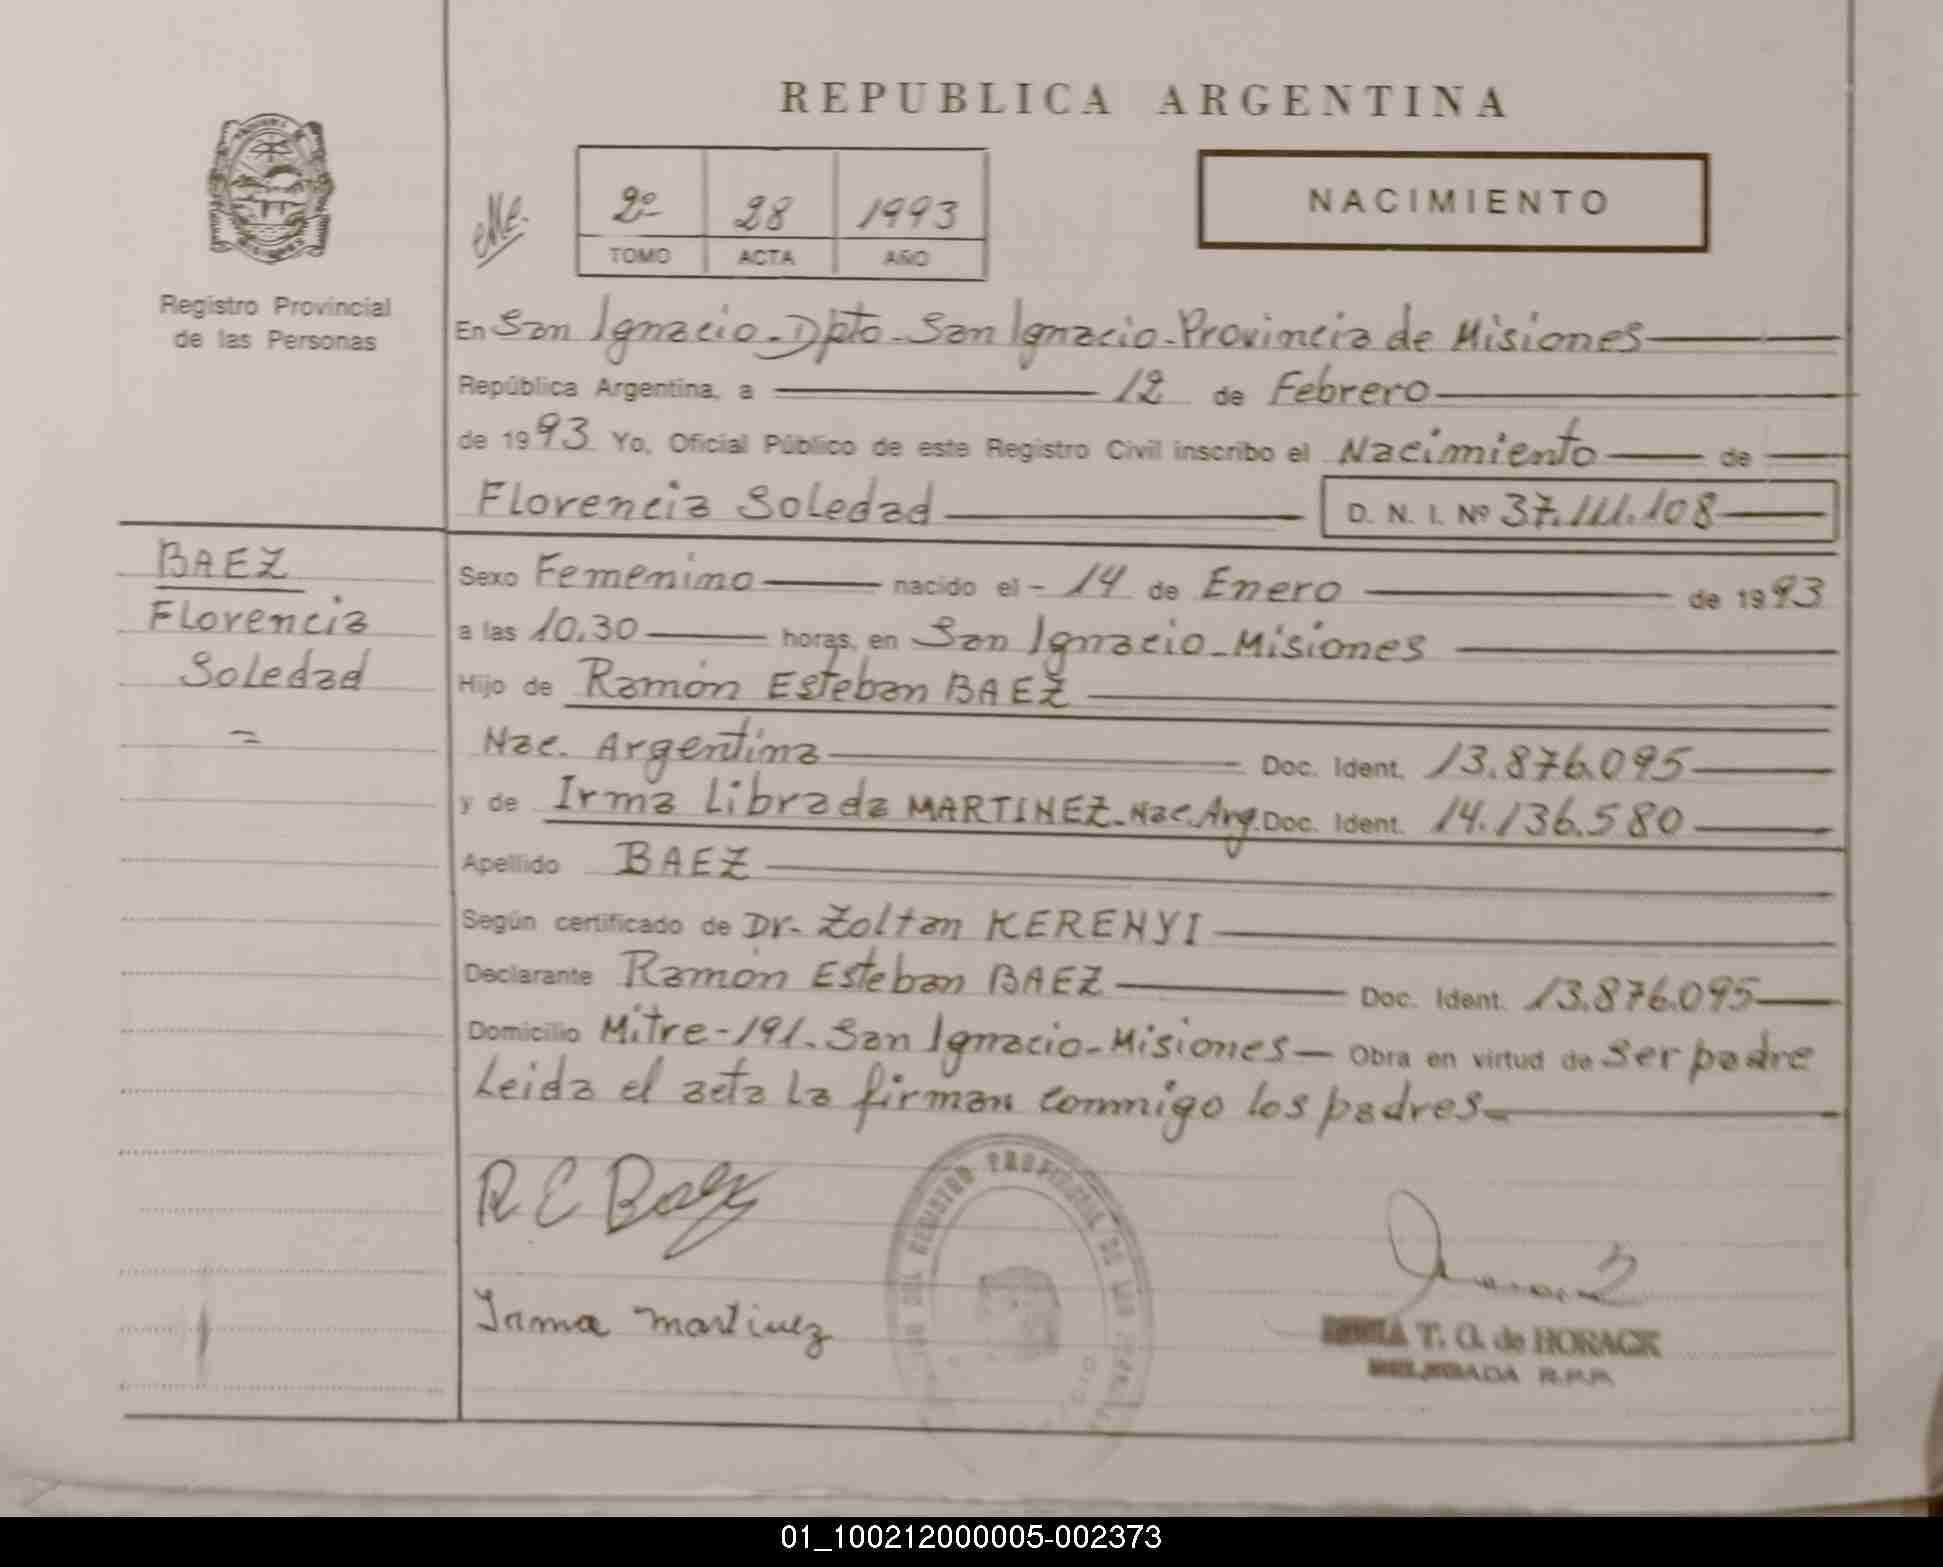 REPUBLICA ARGENTINA
2º 28 1993
TOMO ACTA AÑO
NACIMIENTO
Registro Provincial
de las Personas
En San Ignacio - Dpto - San Ignacio - Provincia de Misiones
República Argentina, a 12 de Febrero
de 1993 Yo, Oficial Público de este Registro Civil inscribo el Nacimiento de
Florencia Soledad D. N. I. Nº 37.111.108
BAEZ
Florencia
Soledad
Sexo Femenino nacido el - 14 de Enero de 1993
a las 10.30 horas, en San Ignacio - Misiones
Hijo de Ramón Esteban BAEZ
Nac. Argentina Doc. Ident. 13.876.095
y de Irma Librada MARTINEZ - Nac. Arg. Doc. Ident. 14.136.580
Apellido BAEZ
Según certificado de Dr. Zoltan KERENYI
Declarante Ramón Esteban BAEZ Doc. Ident. 13.876.095
Domicilio Mitre - 191 - San Ignacio - Misiones - Obra en virtud de ser padre
Leida el acta la firman conmigo los padres
R E Baez
Irma Martinez
REGISTRO PROVINCIAL DE LAS
T. O. de HORACK
DELEGADA R.P.P.
01_100212000005-002373